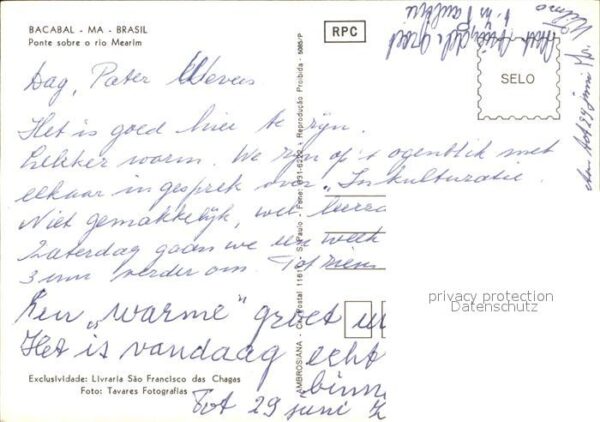 BACABAL - MA - BRASIL
Ponte sobre o rio Mearim
RPC
SELO
Dag, Pater Wevers
Het is goed hier te zijn.
Lekker warm. We zijn op 't ogenblik met
elkaar in gesprek over "Inkulturatie.
Niet gemakkelijk, wel leerza
Zaterdag gaan we een week
3 uur verder om. Tot ziens
Een "warme" groet
Het is vandaag echt
binn
Tot 29 juni
Exclusividade: Livraria São Francisco das Chagas
Foto: Tavares Fotografias
AMBROSIANA - C. Postal 1161 - S. Paulo - Fone: 291-6222 - Reprodução Proibida - 5085/P
privacy protection
Datenschutz